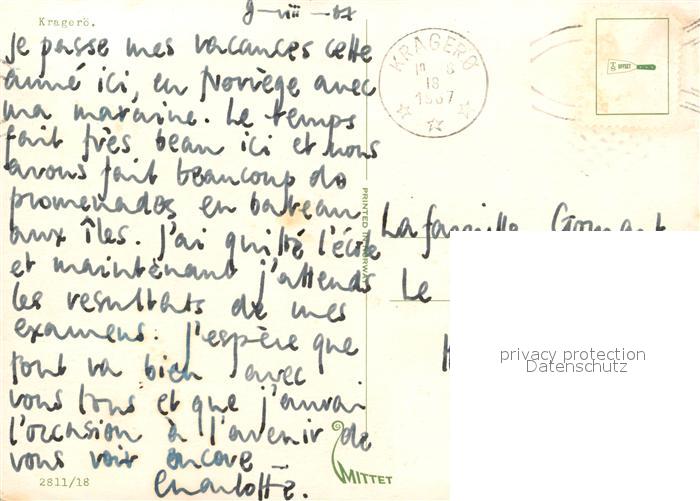 Kragerö.
9-VIII-67
Je passe mes vacances cette
année ici, en Norvège avec
ma marraine. Le temps
fait très beau ici et nous
avons fait beaucoup do
promenades en bateau
aux îles. J'ai quitté l'école
et maintenant j'attends
les resultats de mes
examens. J'espère que
tout va bien avec
vous tous et que j'aurai
l'occasion à l'avenir de
vous voir encore
Charlotte.
2811/18
PRINTED IN NORWAY
MITTET
KRAGERØ
18
1967
OFFSET
La famille
Le
privacy protection
Datenschutz